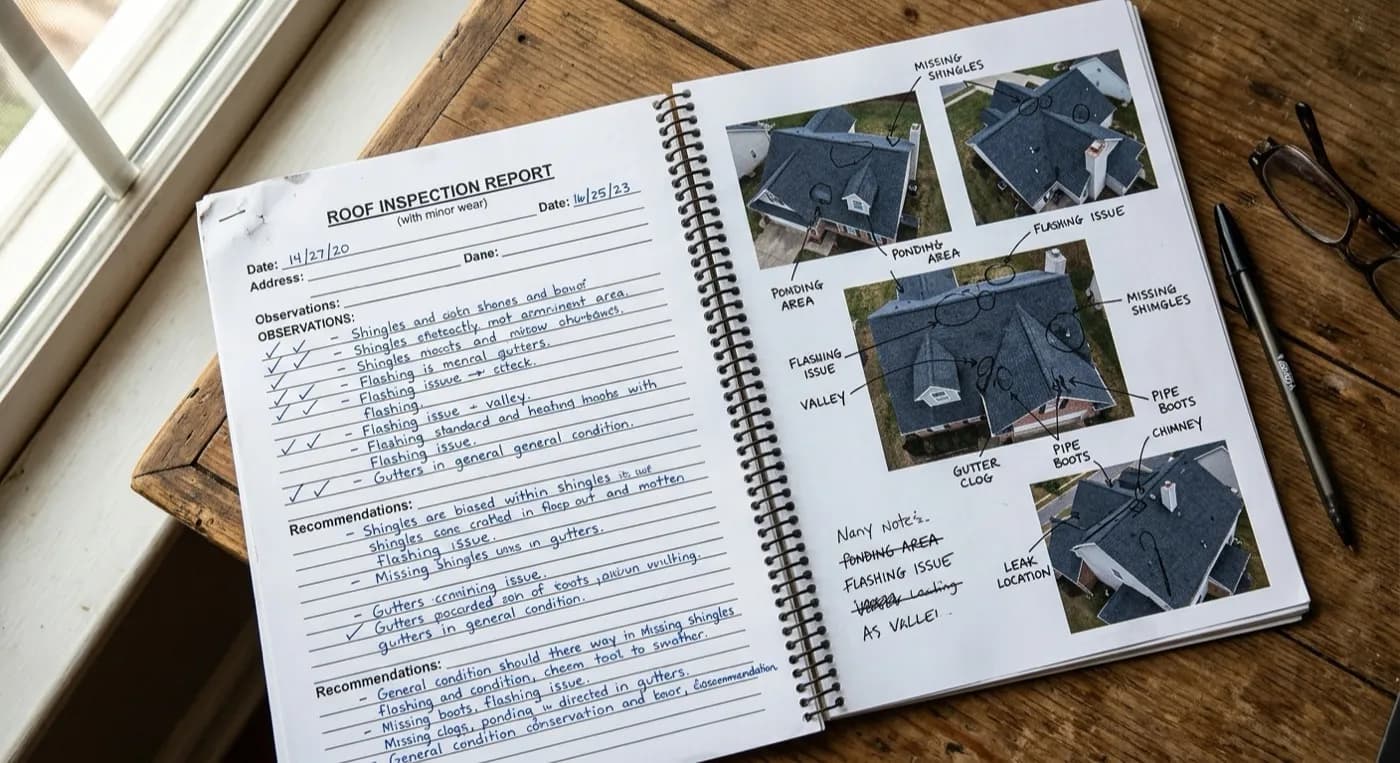 ROOF INSPECTION REPORT
(with minor wear)
Date: 14/27/20
Date: /25/23
Address:
Dane:
Observations:
OBSERVATIONS:
✓ ✓ - Shingles and shones and
✓ ✓ - Shingles mot area.
✓ ✓ - Shingles and
- Flashing is gutters.
✓ ✓ - Flashing issuue → cteck.
✓ ✓ flashing.
- Flashing issue + valley.
✓ ✓ - Flashing standard and heating with
Flashing issue.
✓ ✓ - Gutters in general general condition.
Recommendations:
- Shingles are biased within shingles
shingles cone in out and motten
Flashing issue.
- Missing Shingles in gutters.
- Gutters issue.
✓ Gutters of
gutters in general condition.
Recommendations:
- General condition should there way in Missing shingles
flashing and condition, cheem tool to
- Missing boots, flashing issue.
Missing clogs, ponding directed in gutters.
General condition conservation and
MISSING
SHINGLES
PONDING
AREA
FLASHING ISSUE
POMDING
AREA
MISSING
SHIMGLES
FLASHING
ISSUE
VALLEY
PIPE
BOOTS
CHIMNEY
GUTTER
CLOG
PIPE
BOOTS
LEAK
LOCATION
Nany Note's.
PONDING AREA
FLASHING ISSUE
Leading
AS VALLE!.